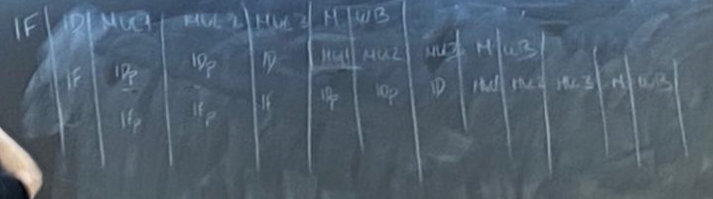 IF ID MUL1 MUL2 MUL3 M WB
IF IDp IDp ID MUL1 MUL2 MUL3 M WB
IFp IFp IF IDp IDp ID MUL1 MUL2 MUL3 M WB